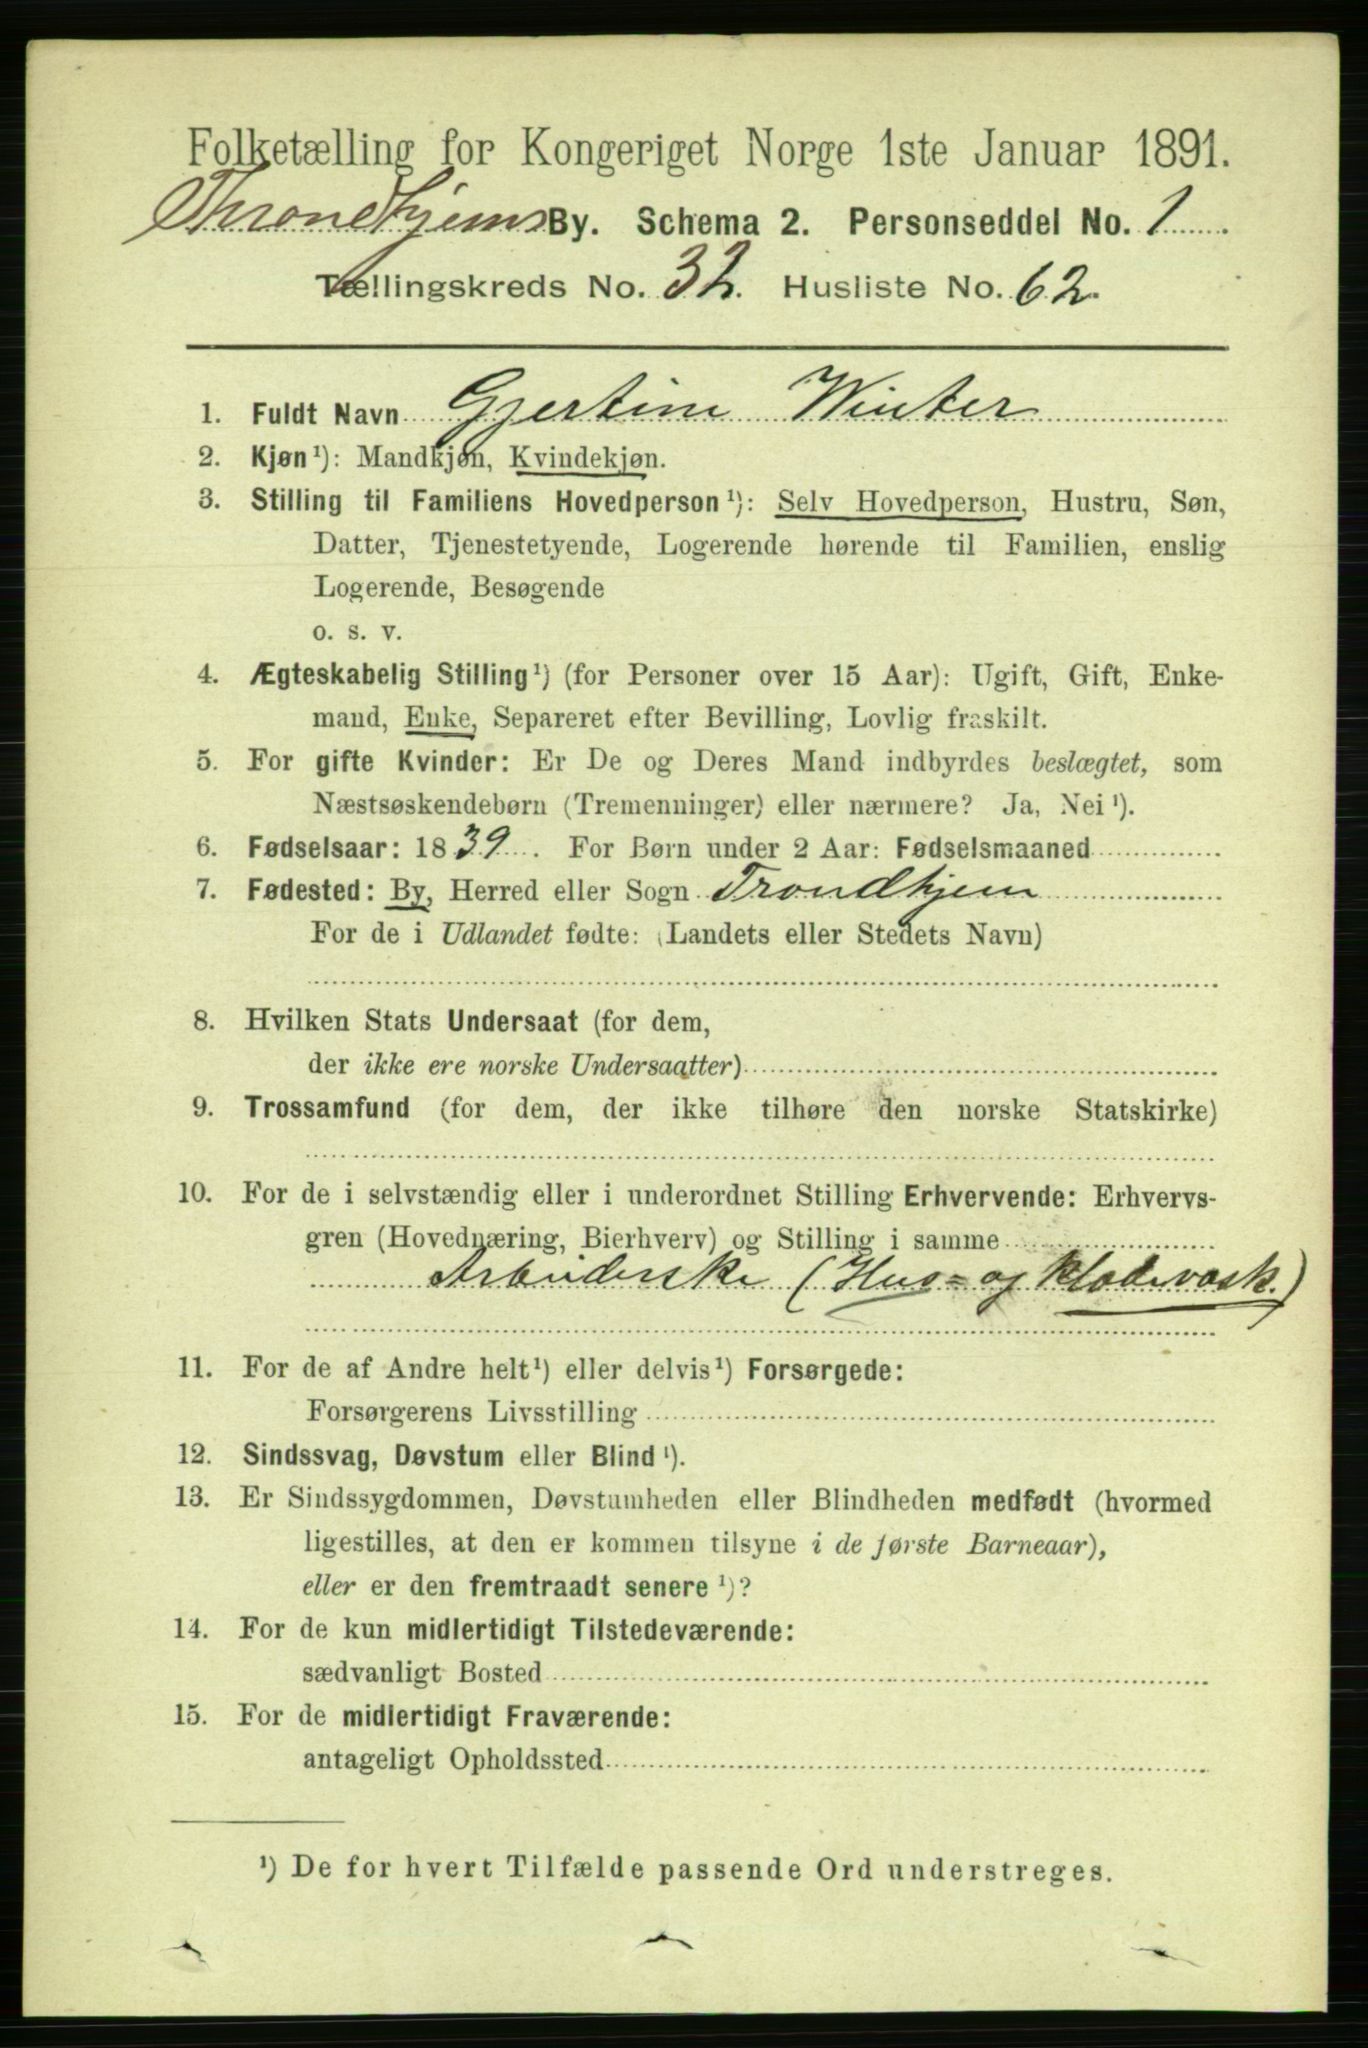 Folketælling for Kongeriget Norge 1ste Januar 1891.
Throndhjems By. Schema 2. Personseddel No. 1
Tællingskreds No. 32. Husliste No. 62.
1. Fuldt Navn Gjertine Winter
2. Kjøn¹): Mandkjøn, Kvindekjøn.
3. Stilling til Familiens Hovedperson¹): Selv Hovedperson, Hustru, Søn,
Datter, Tjenestetyende, Logerende hørende til Familien, enslig
Logerende, Besøgende
o. s. v.
4. Ægteskabelig Stilling¹) (for Personer over 15 Aar): Ugift, Gift, Enke-
mand, Enke, Separeret efter Bevilling, Lovlig fraskilt.
5. For gifte Kvinder: Er De og Deres Mand indbyrdes beslægtet, som
Næstsøskendebørn (Tremenninger) eller nærmere? Ja, Nei¹).
6. Fødselsaar: 1839. For Børn under 2 Aar: Fødselsmaaned
7. Fødested: By, Herred eller Sogn Trondhjem
For de i Udlandet fødte: (Landets eller Stedets Navn)
8. Hvilken Stats Undersaat (for dem,
der ikke ere norske Undersaatter)
9. Trossamfund (for dem, der ikke tilhøre den norske Statskirke)
10. For de i selvstændig eller i underordnet Stilling Erhvervende: Erhvervs-
gren (Hovednæring, Bierhverv) og Stilling i samme
Arbeiderske (Hus- og klædevask.)
11. For de af Andre helt¹) eller delvis¹) Forsørgede:
Forsørgerens Livsstilling
12. Sindssvag, Døvstum eller Blind¹).
13. Er Sindssygdommen, Døvstumheden eller Blindheden medfødt (hvormed
ligestilles, at den er kommen tilsyne i de første Barneaar),
eller er den fremtraadt senere¹)?
14. For de kun midlertidigt Tilstedeværende:
sædvanligt Bosted
15. For de midlertidigt Fraværende:
antageligt Opholdssted
¹) De for hvert Tilfælde passende Ord understreges.